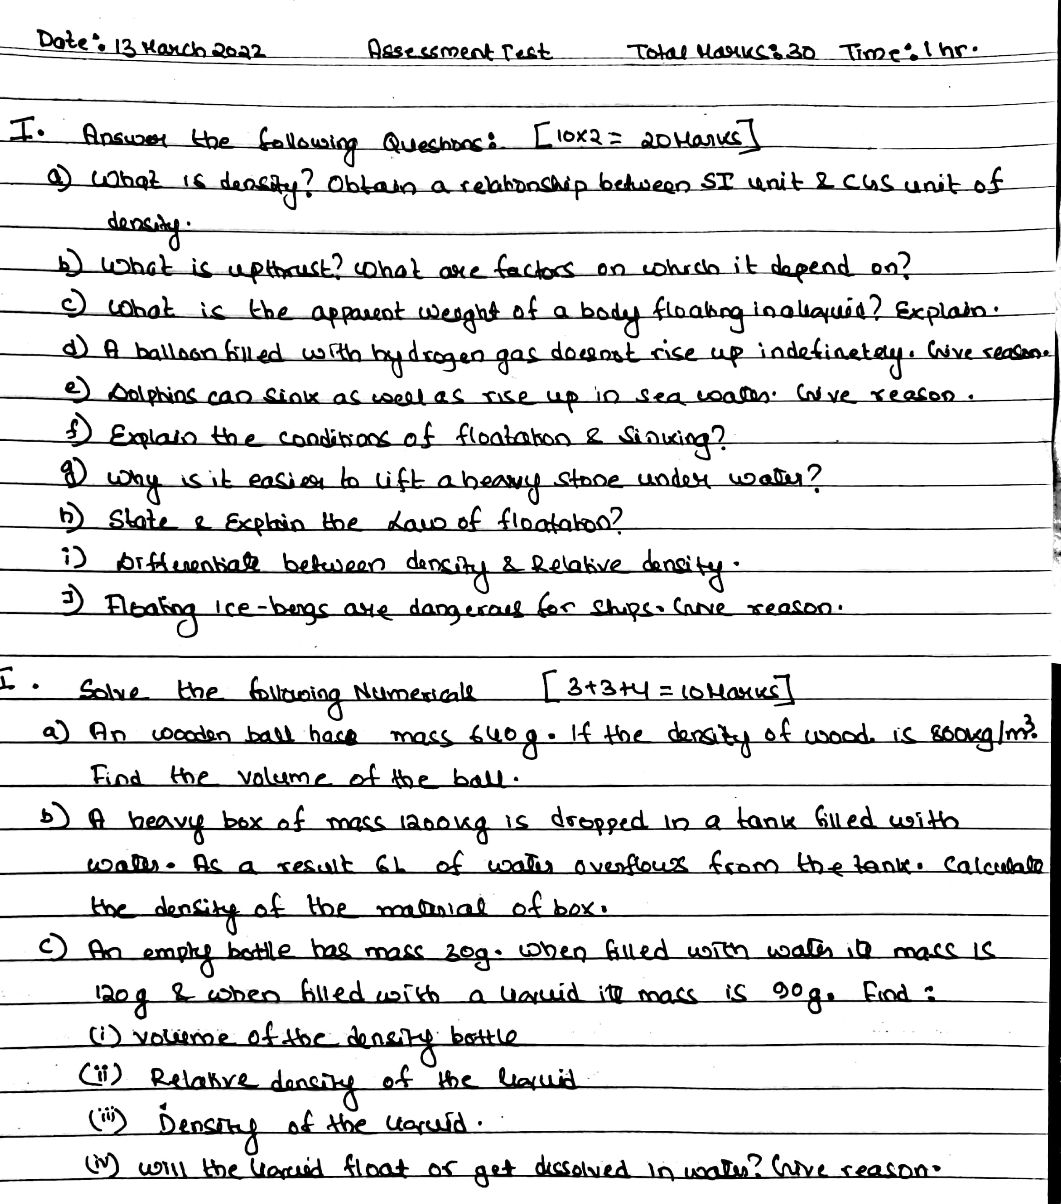 Date: 13 March 2022 Assessment Test Total Marks: 30 Time: 1 hr.
I. Answer the following Questions: [10x2 = 20 Marks]
a) What is density? Obtain a relationship between SI unit & CGS unit of
density.
b) What is upthrust? What are factors on which it depend on?
c) What is the apparent weight of a body floating in a liquid? Explain.
d) A balloon filled with hydrogen gas doesnot rise up indefinetely. Give reason.
e) Dolphins can sink as well as rise up in sea water. Give reason.
f) Explain the conditions of floatation & sinking?
g) Why is it easier to lift a heavy stone under water?
h) State & Explain the Law of floatation?
i) Differentiate between density & Relative density.
J) Floating ice-bergs are dangerous for ships. Give reason.
I. Solve the following Numericals [3+3+4 = 10 Marks]
a) An wooden ball has mass 640g. If the density of wood is 800kg/m³.
Find the volume of the ball.
b) A heavy box of mass 1200kg is dropped in a tank filled with
water. As a result 6L of water overflows from the tank. Calculate
the density of the material of box.
c) An empty bottle has mass 30g. When filled with water its mass is
120g & when filled with a liquid its mass is 90g. Find:
(i) volume of the density bottle
(ii) Relative density of the liquid
(iii) Density of the liquid.
(iv) will the liquid float or get dissolved in water? Give reason.